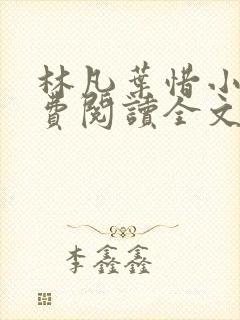 林凡葉惜小
費閱讀全文
李鑫鑫